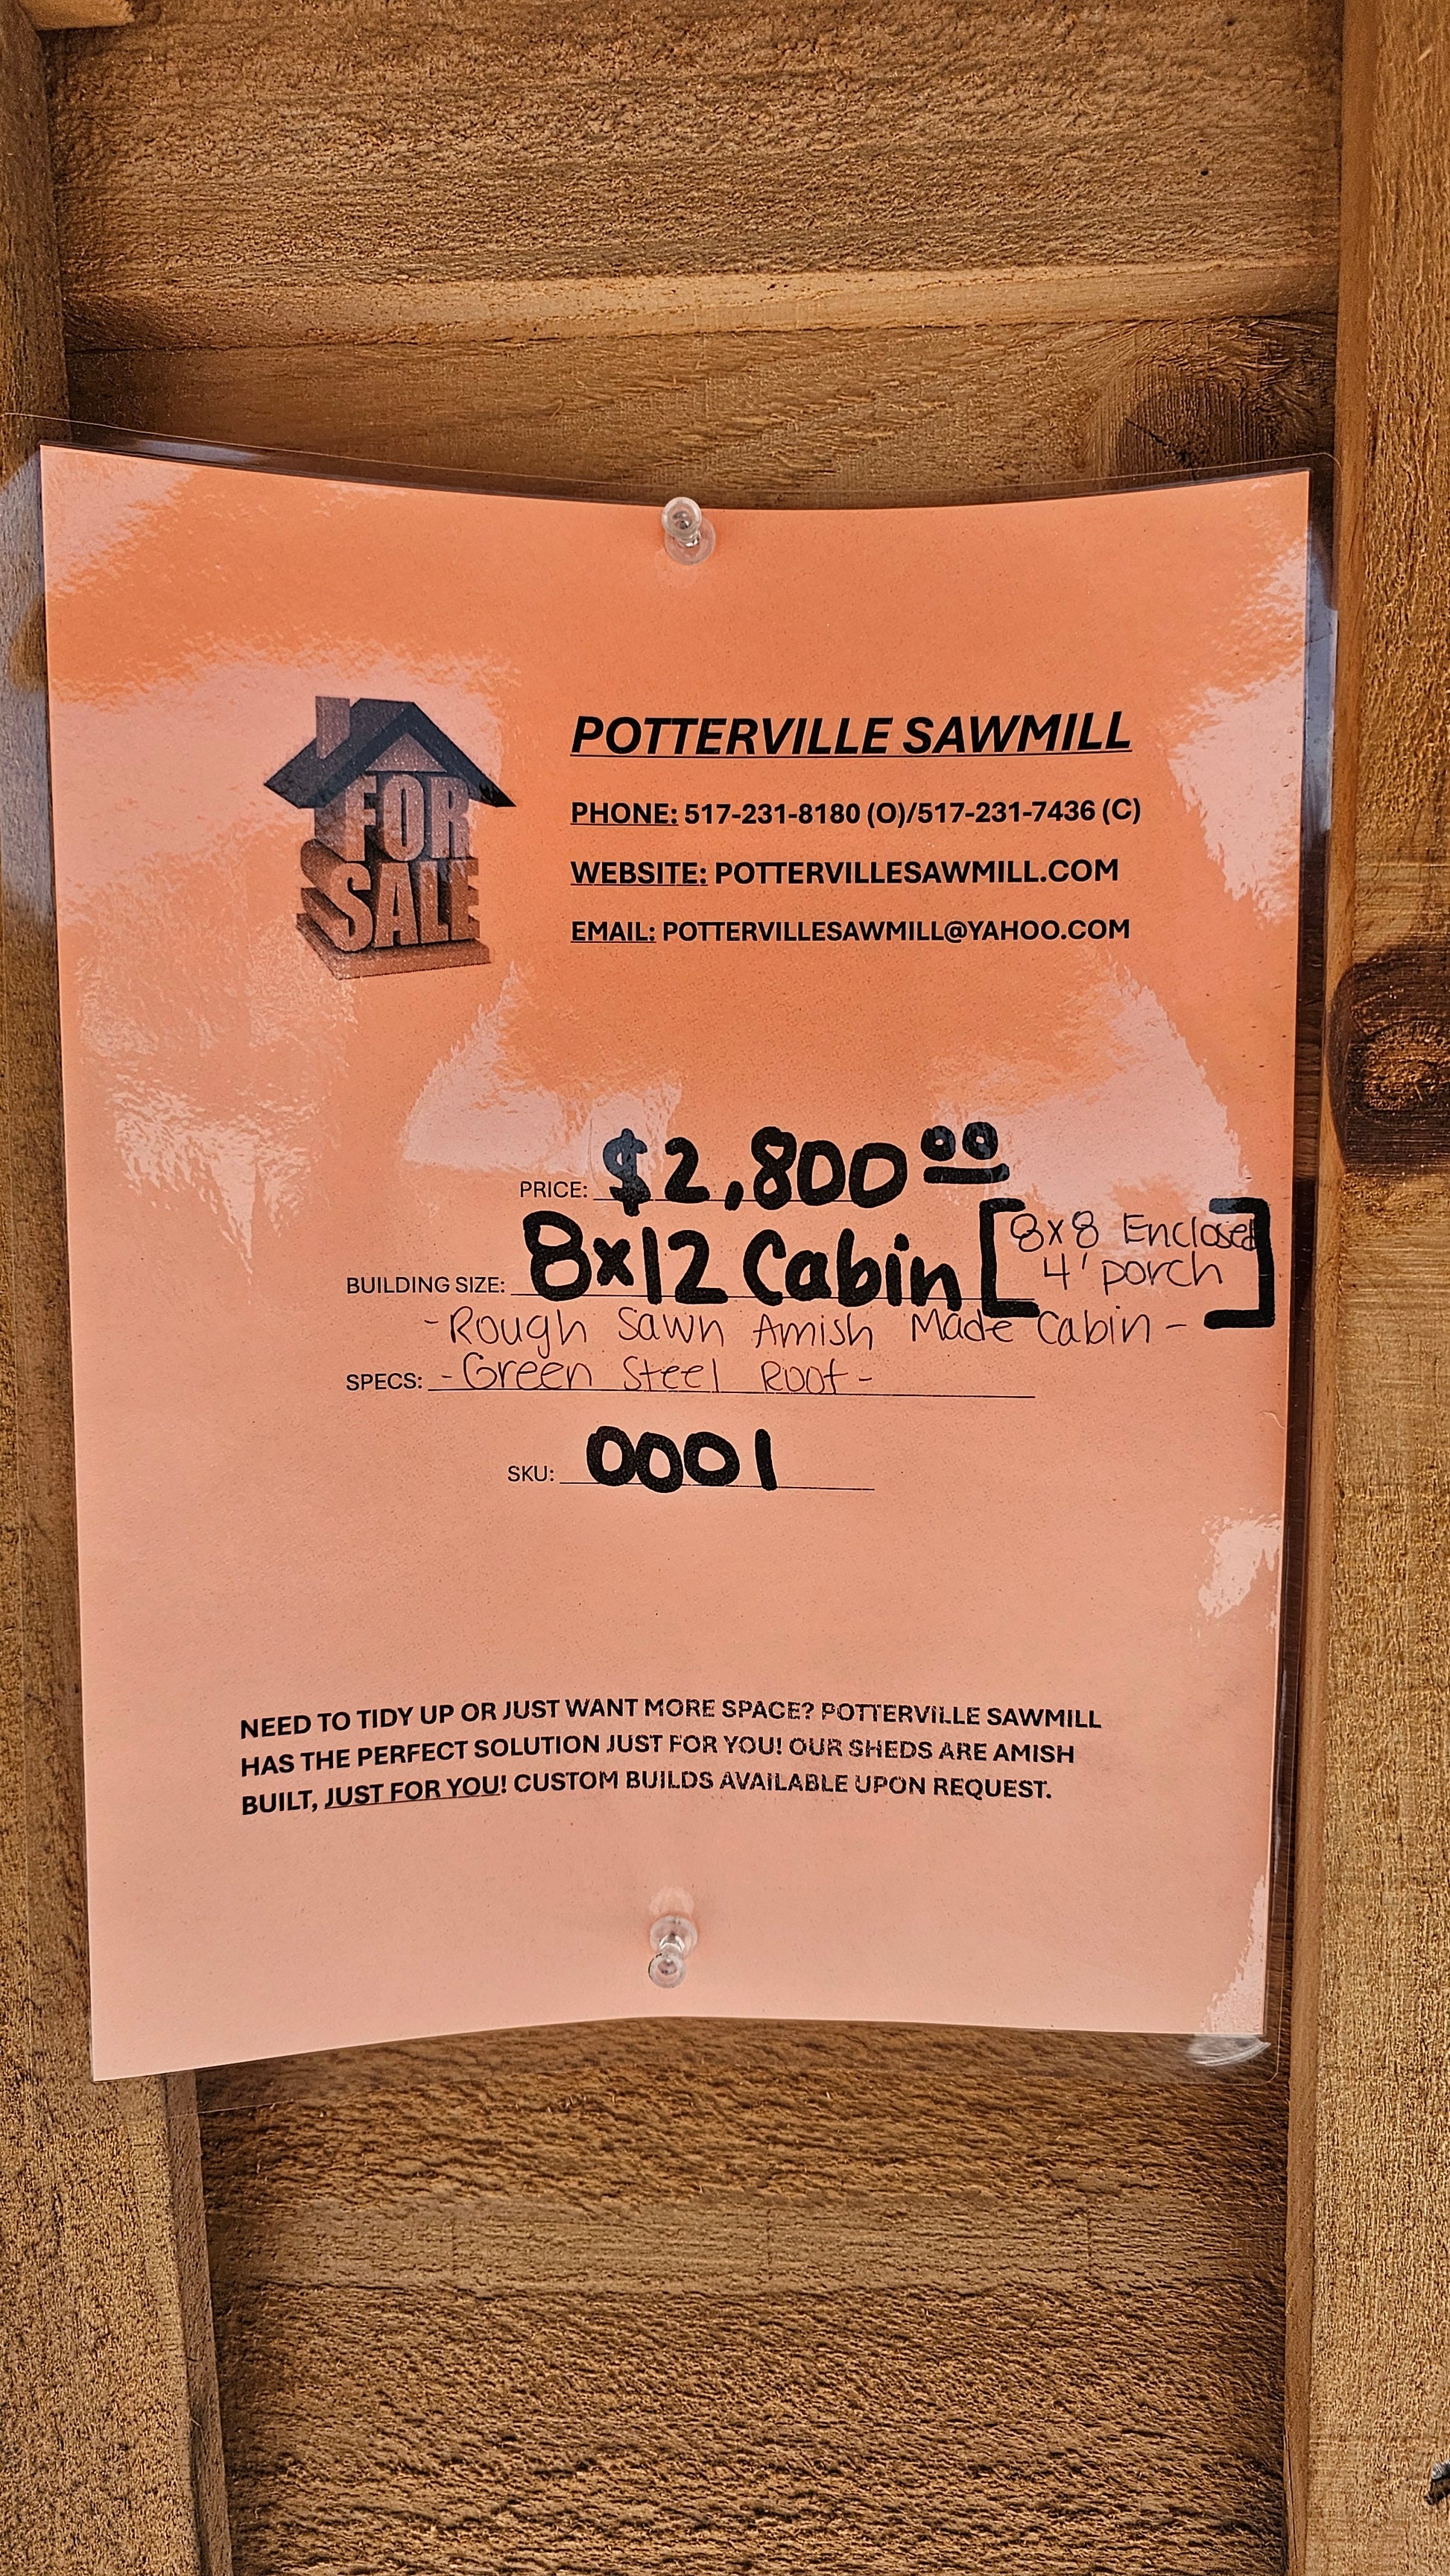 FOR
SALE
POTTERVILLE SAWMILL
PHONE: 517-231-8180 (O)/517-231-7436 (C)
WEBSITE: POTTERVILLESAWMILL.COM
EMAIL: POTTERVILLESAWMILL@YAHOO.COM
PRICE: $2,800 00
BUILDING SIZE: 8x12 Cabin [8x8 Enclosed
4' porch]
-Rough Sawn Amish Made Cabin-
SPECS: -Green Steel Roof-
SKU: 0001
NEED TO TIDY UP OR JUST WANT MORE SPACE? POTTERVILLE SAWMILL
HAS THE PERFECT SOLUTION JUST FOR YOU! OUR SHEDS ARE AMISH
BUILT, JUST FOR YOU! CUSTOM BUILDS AVAILABLE UPON REQUEST.